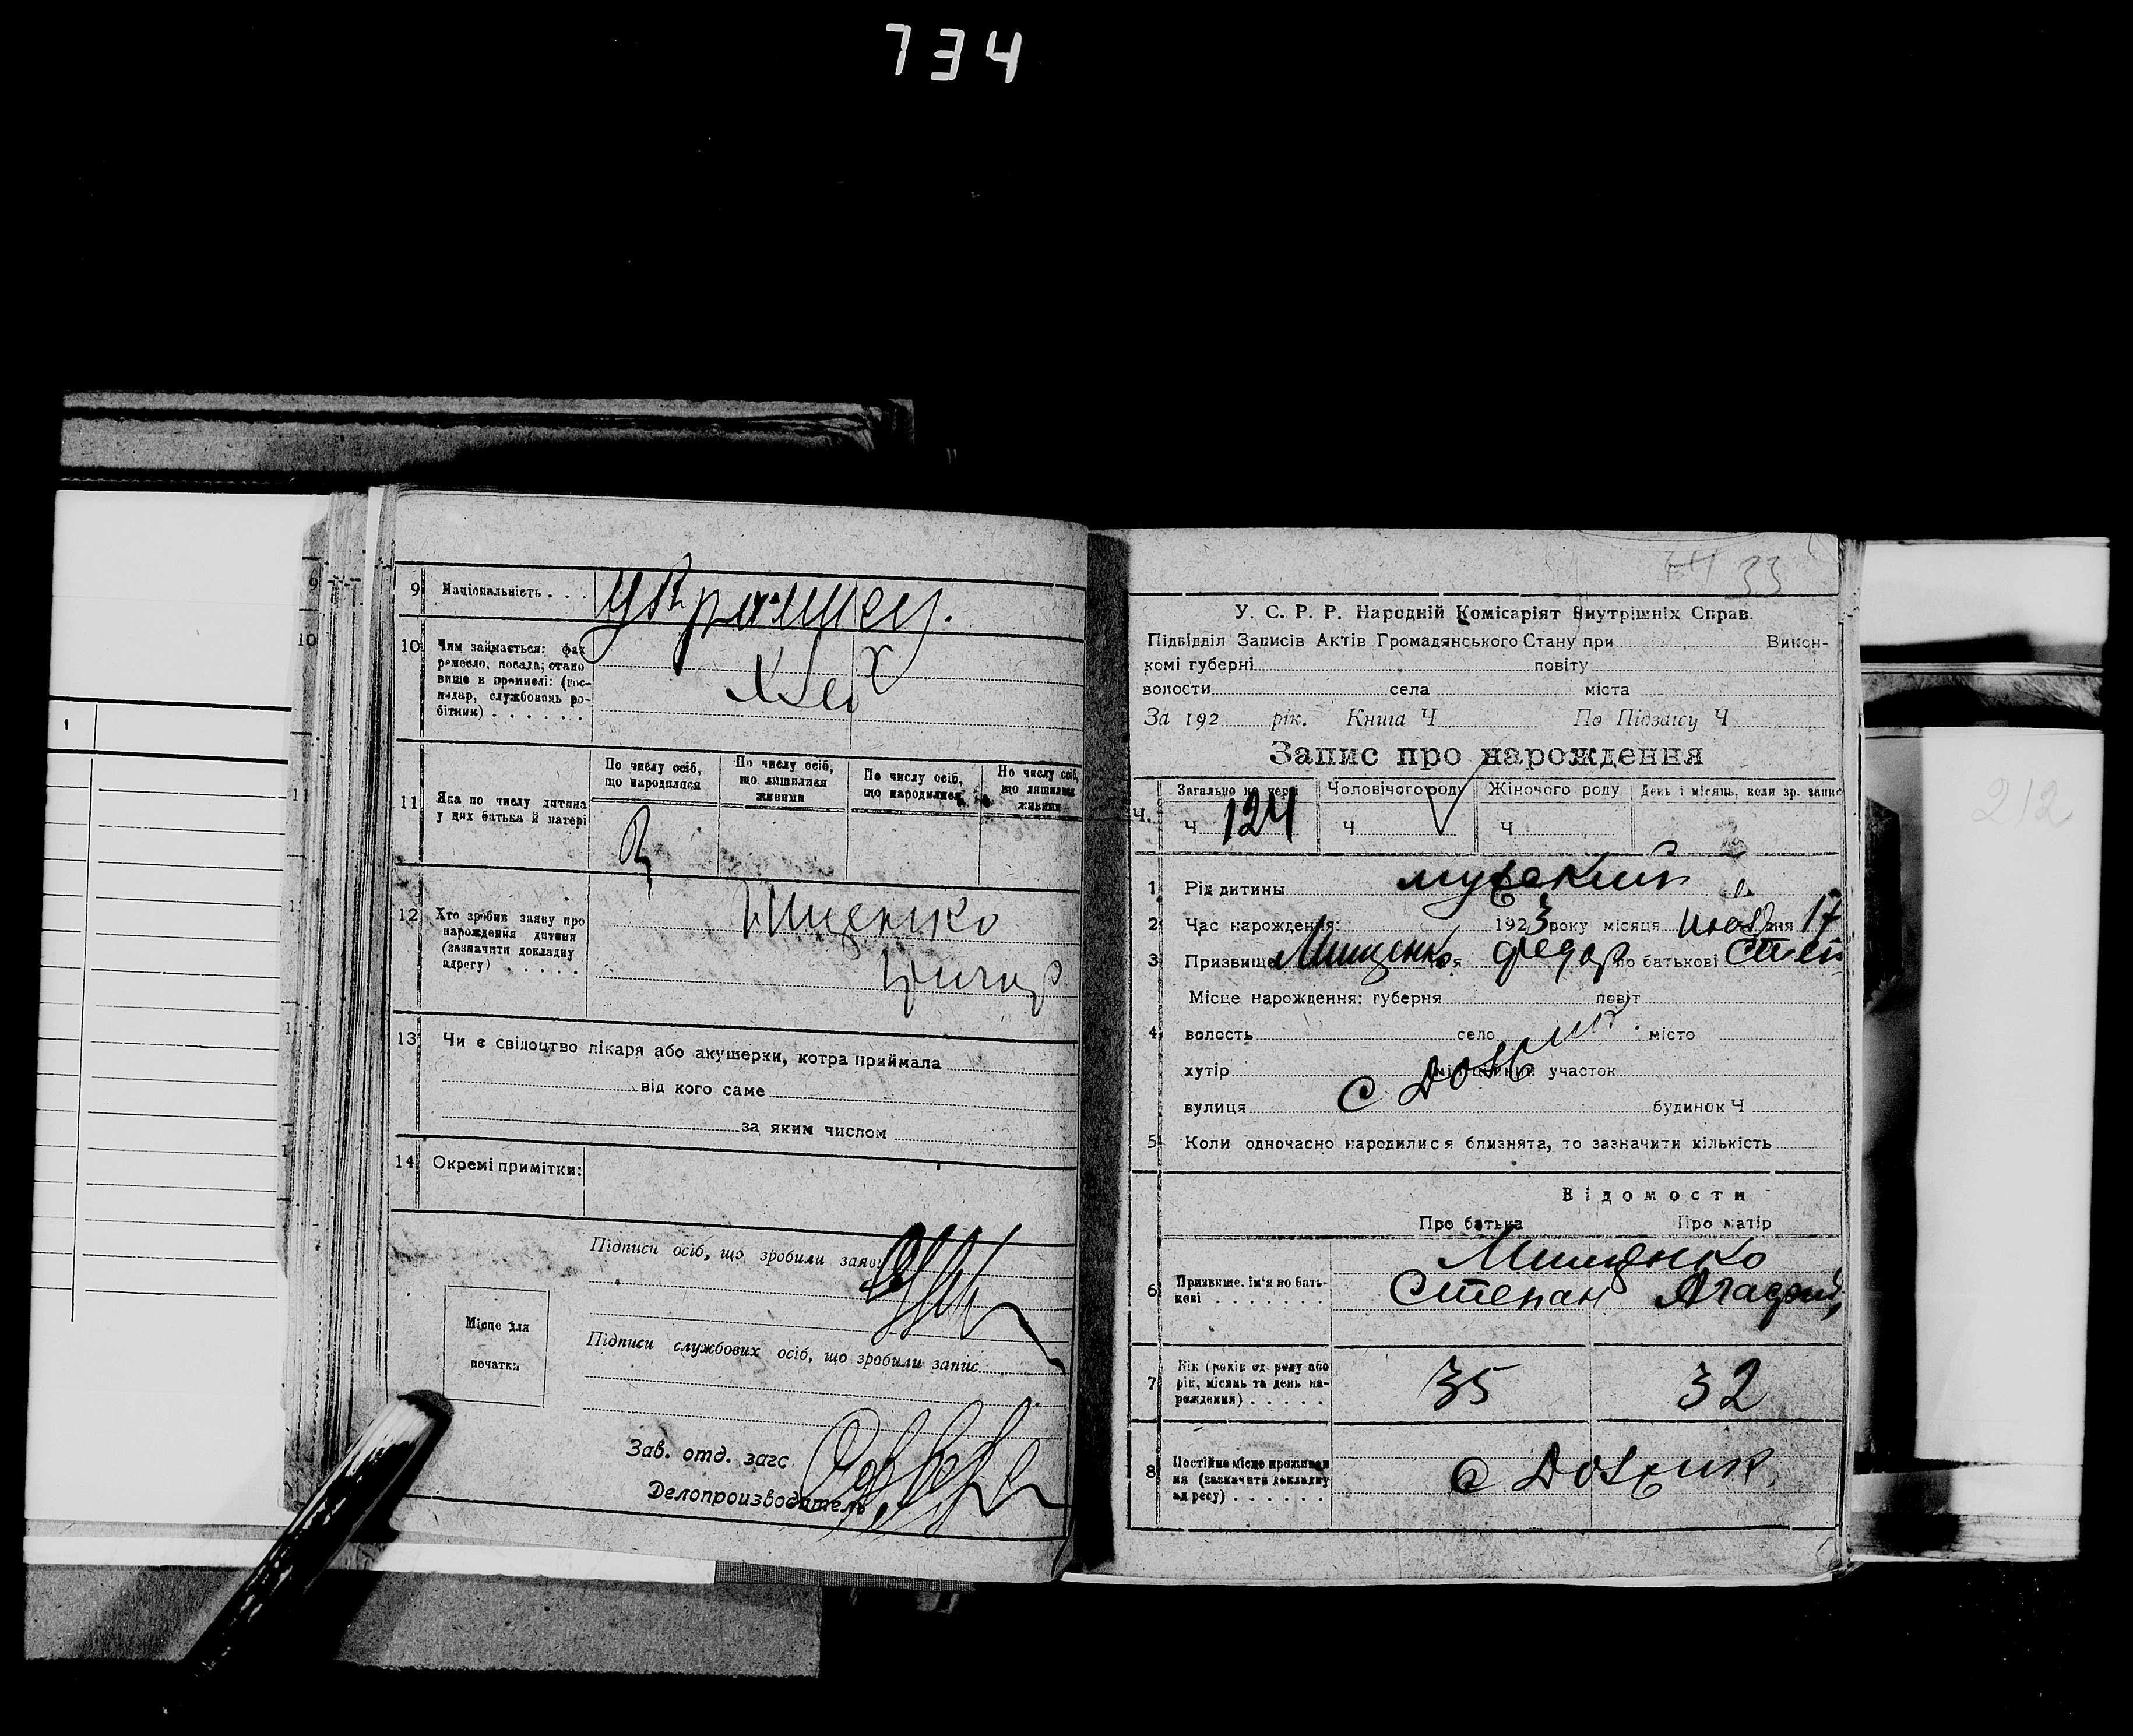 734
9 Національність . . . украинец.
10 Чим займається: фах
ремесло, посада; стано
вище в промислі: (гос-
подар, службовець ро-
бітник) . . . . . .
хлеб
11 Яка по числу дитина
у цих батька й матері
По числу осіб,
що народилися
По числу осіб,
що лишилися
живими
По числу осіб,
що народилися
По числу осіб,
що лишилися
живими
2
12 Хто зробив заяву про
нарождення дитини
(зазначити докладну
адресу) . . . . .
13 Чи є свідоцтво лікаря або акушерки, котра приймала
від кого саме
за яким числом
14 Окремі примітки:
Підписи осіб, що зробили заяву
Місце для
печатки
Підписи службових осіб, що зробили запис
Зав. отд. загс
Делопроизводитель
33
У. С. Р. Р. Народній Комісаріят Внутрішніх Справ.
Підвідділ Записів Актів Громадянського Стану при Викон-
комі губерні повіту
волости села міста
За 192 рік. Книга Ч По Підзапису Ч
Запис про нарождення
Ч.
Загально на чер.
Ч 124
Чоловічого роду
Ч V
Жіночого роду
Ч
День і місяць, коли зр. запис
1 Рід дитины мужский
2 Час нарождення: 1923 року місяця дня 17
3 Призвище Мищенко ім'я Федор по батькові Степ
Місце нарождення: губерня повіт
4 волость село місто
хутір міліційний участок
вулиця будинок Ч
5 Коли одночасно народилися близнята, то зазначити кількість
Відомости
Про батька Про матір
6 Призвище, ім'я по бать-
кові . . . . . . .
Мищенко
Степан
7 Вік (років од роду або
рік, місяць та день на-
рождення) . . . . .
35 32
8 Постійне місце проживан
ня (зазначити докладну
адресу) . . . . . .
1
212